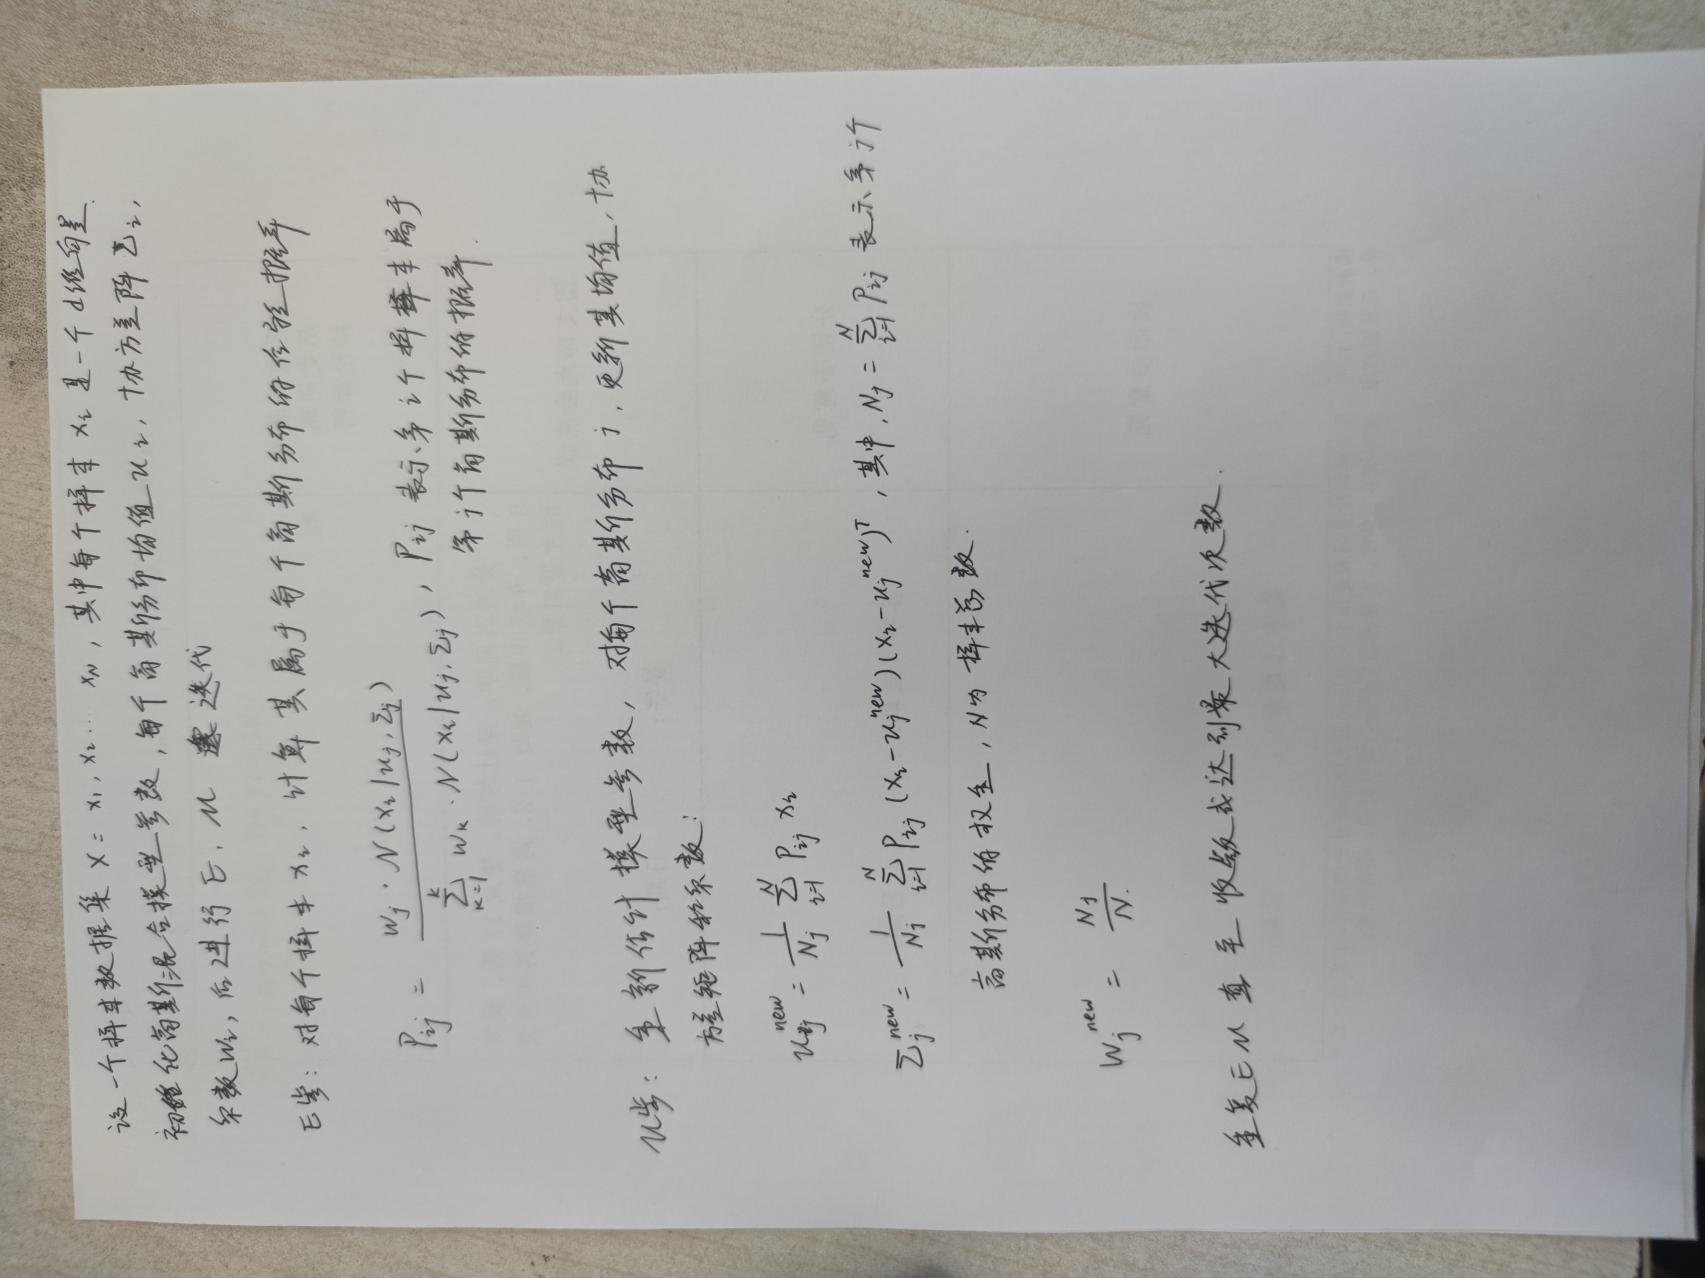 设一个样本数据集 X = x₁, x₂ ... x_N, 其中每个样本 xᵢ 是一个 d维向量.
初始化高斯混合模型参数, 每个高斯分布均值 uᵢ, 协方差阵 Σᵢ,
系数 wᵢ, 后进行 E. M 迭代
E步: 对每个样本 xᵢ, 计算其属于每个高斯分布的后验概率
Pᵢⱼ = wⱼ · N(xᵢ|uⱼ, Σⱼ) / Σ_{k=1}^{k} w_k · N(xᵢ|uⱼ, Σⱼ), Pᵢⱼ 表示第 i个样本属于
第 j个高斯分布的概率.
M步: 重新估计模型参数, 对每个高斯分布 j, 更新其均值, 协
方差矩阵和系数:
uⱼ^new = 1/Nⱼ Σ_{i=1}^{N} Pᵢⱼ xᵢ
Σⱼ^new = 1/Nⱼ Σ_{i=1}^{N} Pᵢⱼ (xᵢ-uⱼ^new)(xᵢ-uⱼ^new)^T, 其中, Nⱼ = Σ_{i=1}^{N} Pᵢⱼ 表示第 j个
高斯分布的权重, N为样本总数.
Wⱼ^new = Nⱼ/N.
重复EM直至收敛或达到最大迭代次数.